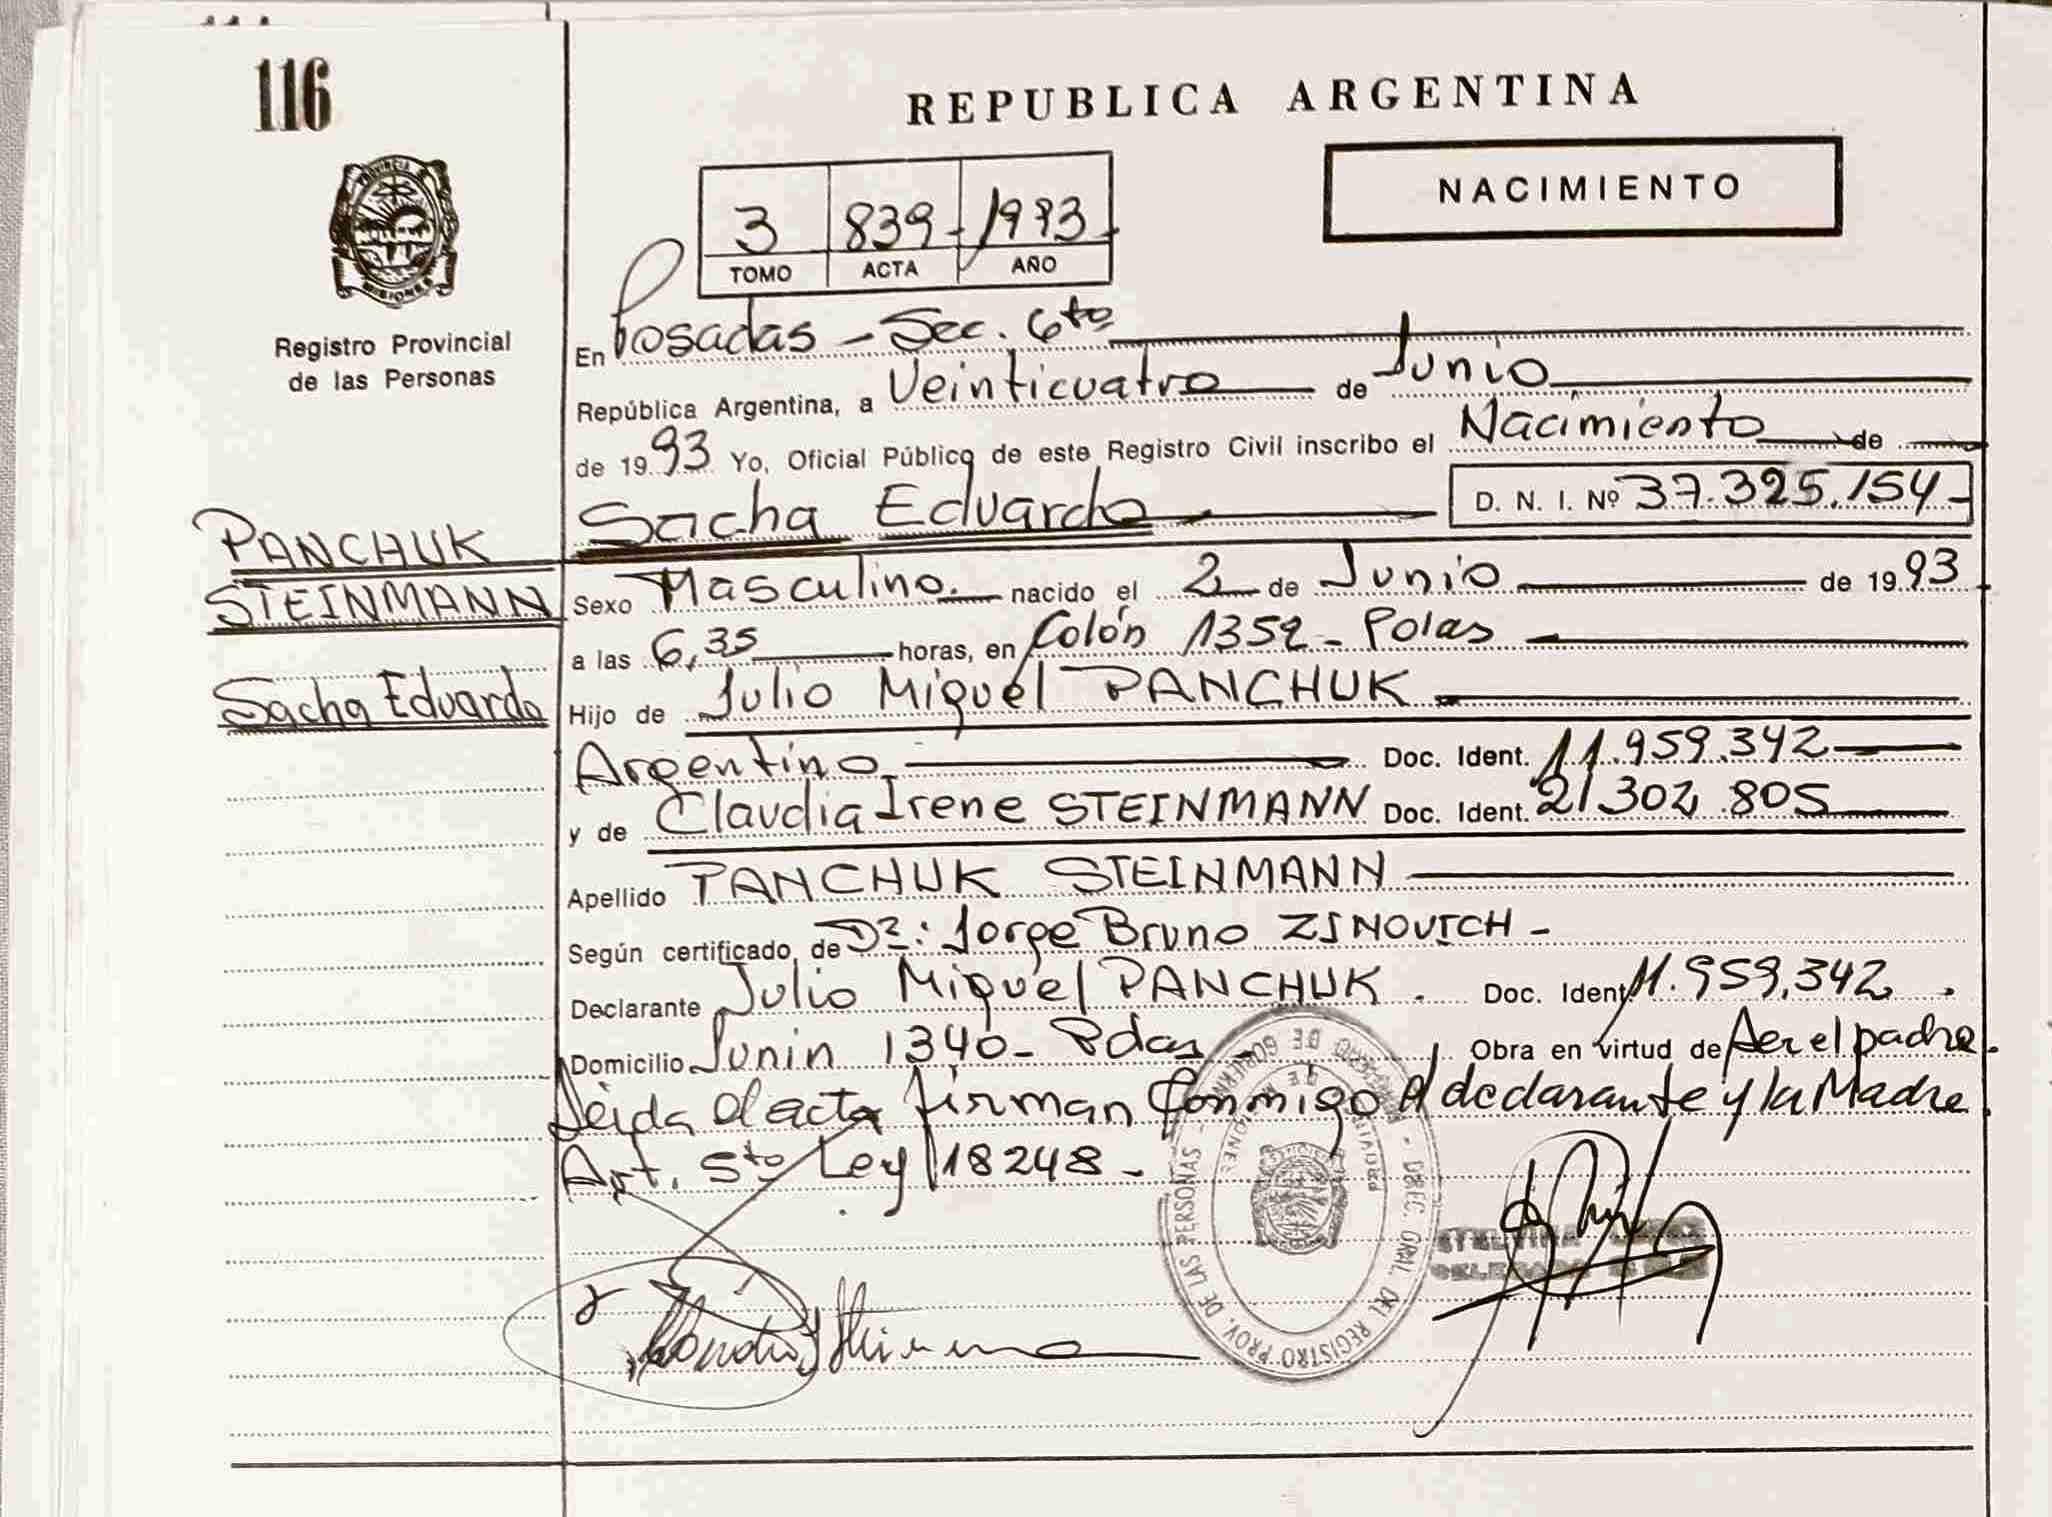 116
REPUBLICA ARGENTINA
NACIMIENTO
3 839- 1993-
TOMO ACTA AÑO
PROVINCIA DE MISIONES
Registro Provincial
de las Personas
En Posadas - Sec. 6to
República Argentina, a Veinticuatro de Junio
de 1993 Yo, Oficial Público de este Registro Civil inscribo el Nacimiento de
Sacha Eduardo D. N. I. Nº 37.325.154-
PANCHUK
STEINMANN
Sacha Eduardo
Sexo Masculino. nacido el 2 de Junio de 1993
a las 6,35 horas, en Colón 1352 - Pdas
Hijo de Julio Miguel PANCHUK
Argentino Doc. Ident. 11.959.342
y de Claudia Irene STEINMANN Doc. Ident. 21.302.805
Apellido PANCHUK STEINMANN
Según certificado de Dr: Jorge Bruno ZINOVICH -
Declarante Julio Miguel PANCHUK . Doc. Ident. 11.959.342 .
Domicilio Junin 1340 - Pdas - Obra en virtud de Ser el padre.
Leida el acta firman Conmigo el declarante y la Madre.
Art. 5to Ley 18248 -
DREC. GRAL. DEL REGISTRO PROV. DE LAS PERSONAS - MINISTERIO DE GOBIERNO